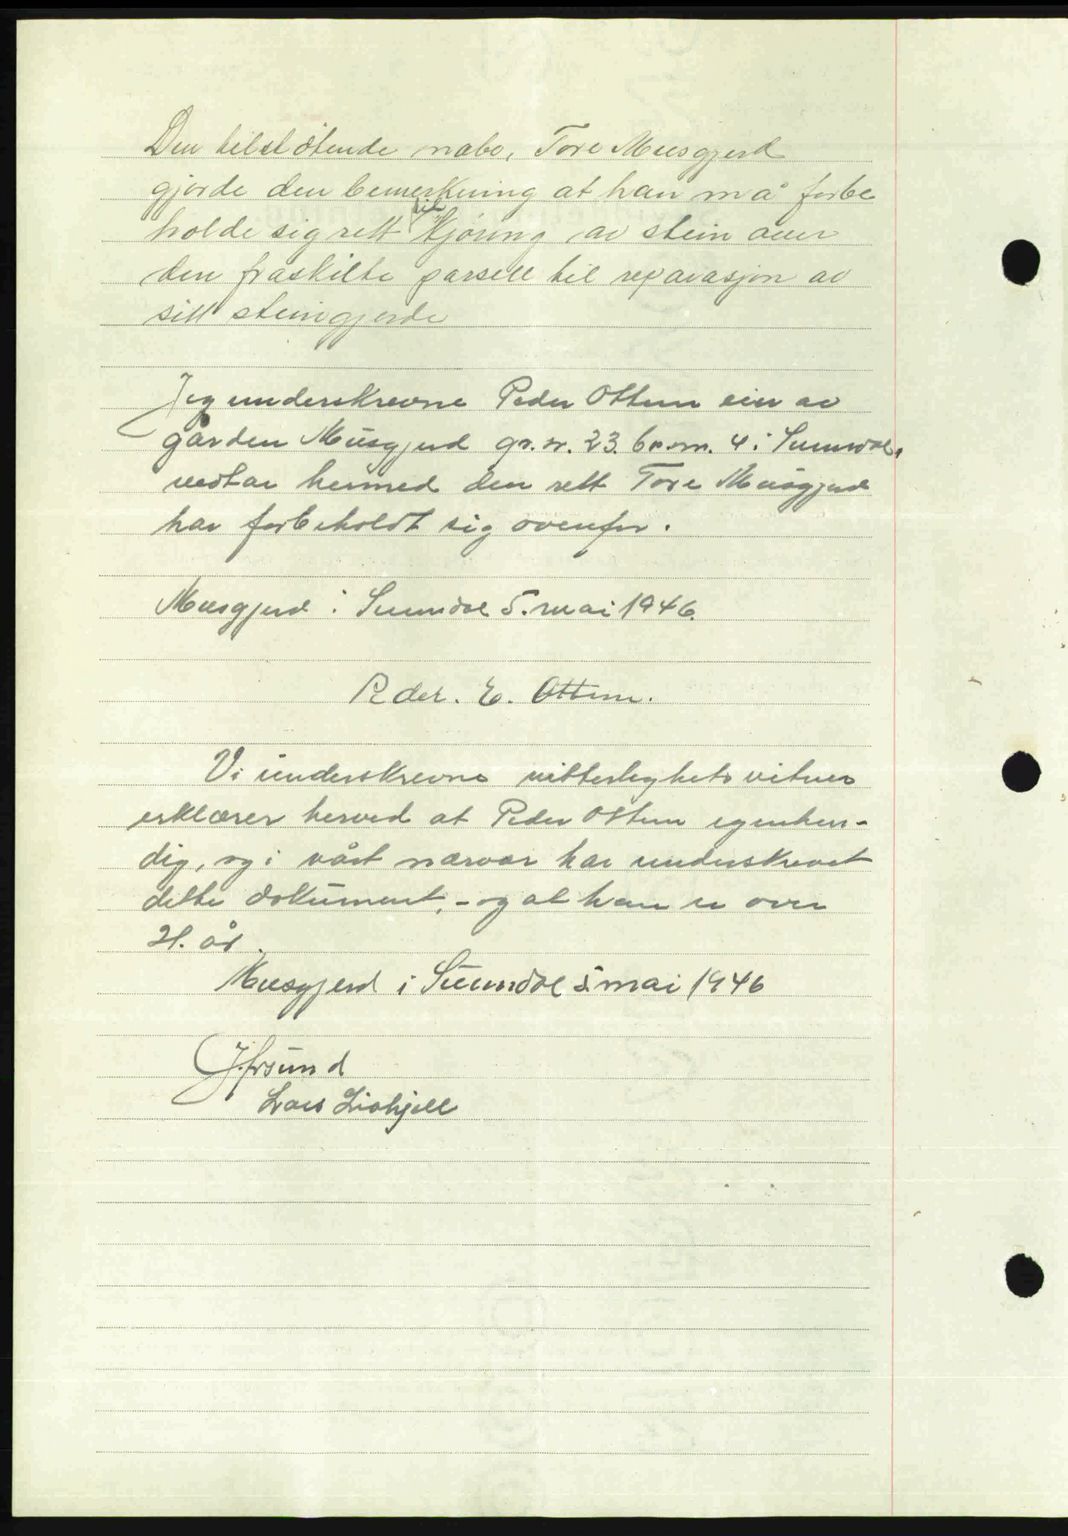 Den tilstøtende nabo, Tore Musgjerd
gjorde den bemerkning at han må forbe
holde sig rett til kjøring av stein over
den fraskilte parsell til reparasjon av
sitt steingjerde
Jeg underskrevne Peder Ottem eier av
gården Musgjerd gr. nr. 23. br. nr. 4 i Sunndal,
vedtar hermed den rett Tore Musgjerd
har forbeholdt sig ovenfor.
Musgjerd i Sunndal 5. mai 1946.
Peder. E. Ottem.
Vi underskrevne vitterlighets vitner
erklærer herved at Peder Ottem egenhen-
dig, og i vårt nærvær har underskrevet
dette dokument, - og at han er over
21. år.
Musgjerd i Sunndal 5. mai 1946
Lars Liahjell